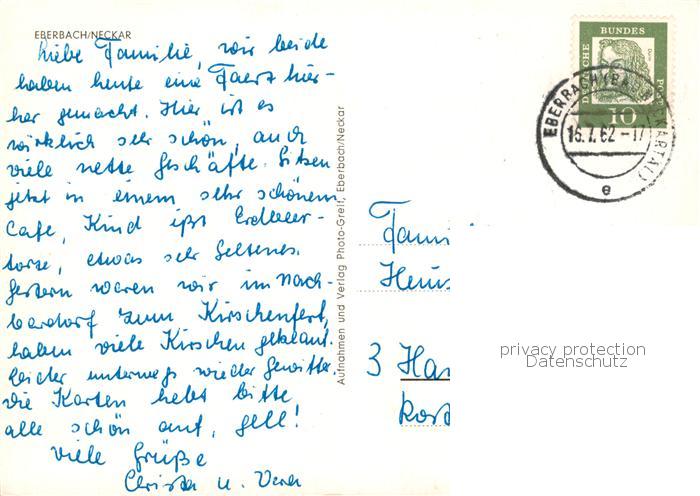 EBERBACH/NECKAR
Liebe Familie, wir beide
haben heute eine Fahrt hier-
her gemacht. Hier ist es
wirklich sehr schön, auch
viele nette Geschäfte. Sitzen
jetzt in einem sehr schönem
Cafe, Kind ißt Erdbeer-
torte, etwas sehr Seltenes.
Gestern waren wir im Nach-
bardorf zum Kirschenfest,
haben viele Kirschen geklaut.
Leider unterwegs wieder Gewitter.
Die Karten hebt bitte
alle schön auf, gell!
Viele Grüße
Christa u. Vera
Aufnahmen und Verlag Photo-Greif, Eberbach/Neckar
DEUTSCHE BUNDES POST
10
EBERBACH (BADEN) NECKARTAL
16.7.62 -17
e
Fami
3 Han
privacy protection
Datenschutz